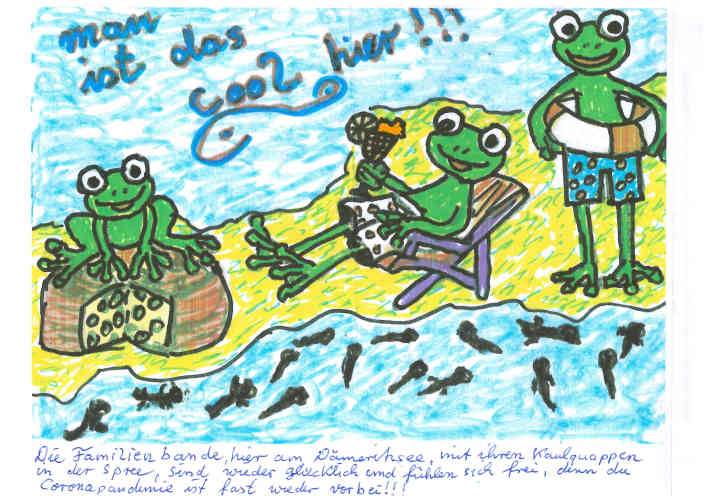 man
ist das
cool hier!!!
Die Familienbande, hier am Dämeritzsee, mit ihren Kaulquappen
in der Spree, sind wieder glücklich und fühlen sich frei, denn die
Coronapandemie ist fast wieder vorbei!!!